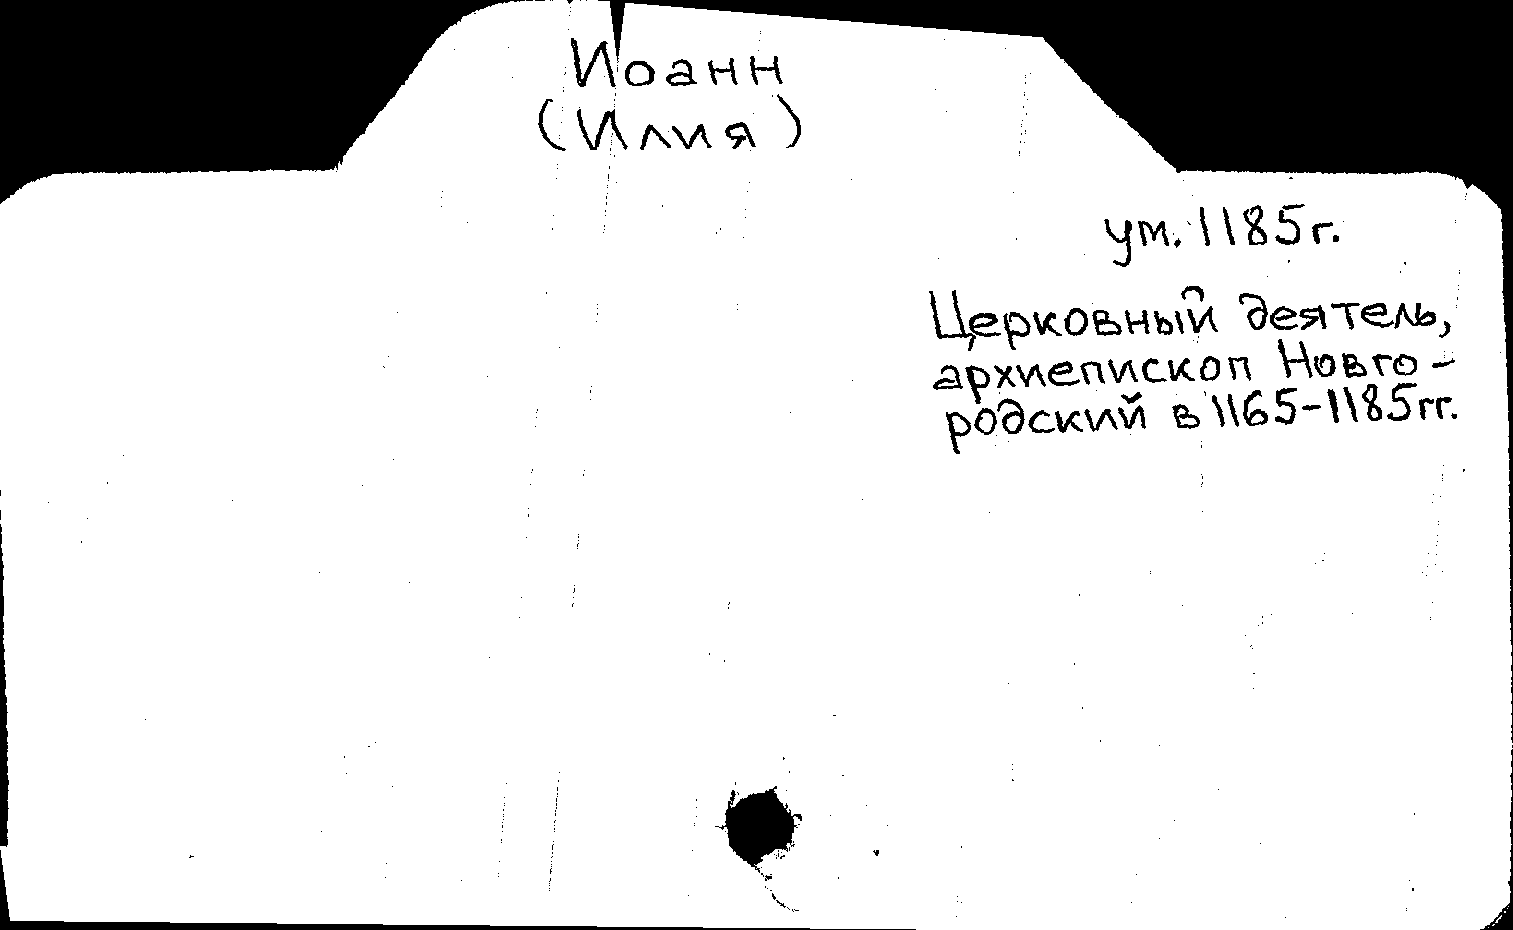 Иоанн
(Илия)
ум. 1185г.
Церковный деятель,
архиепископ Новго-
родский в 1165-1185гг.